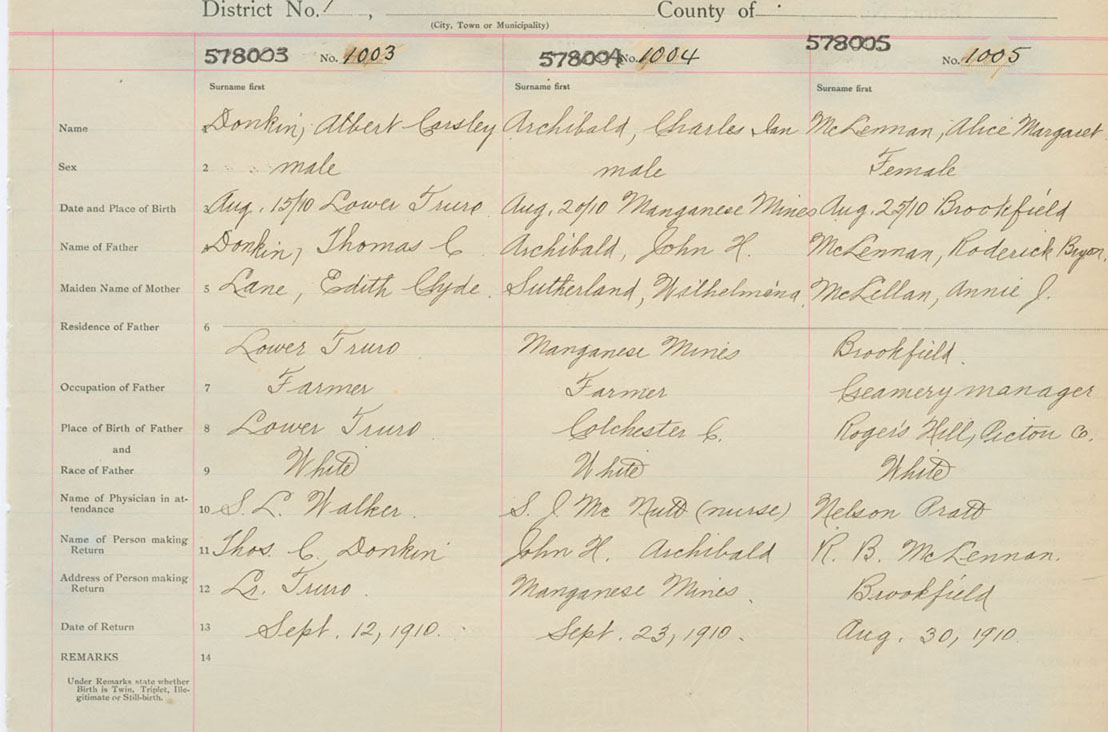 District No. 1, County of
(City, Town or Municipality)
578003 No. 1003 578004 No. 1004 578005 No. 1005
Surname first Surname first Surname first
Name 1 Donkin, Albert Corsley Archibald, Charles Ian McLennan, Alice Margaret
Sex 2 male male Female
Date and Place of Birth 3 Aug. 15/10 Lower Truro Aug. 20/10 Manganese Mines Aug. 25/10 Brookfield
Name of Father 4 Donkin, Thomas C Archibald, John H. McLennan, Roderick Bryon.
Maiden Name of Mother 5 Lane, Edith Clyde. Sutherland, Wilhelmina McLellan, Annie J.
Residence of Father 6
Lower Truro Manganese Mines Brookfield.
Occupation of Father 7 Farmer Farmer Creamery manager
Place of Birth of Father 8 Lower Truro Colchester C. Roger's Hill, Pictou Co.
and
Race of Father 9 White White White
Name of Physician in at-
tendance 10 S. L. Walker. S. J Mc Nutt (nurse) Nelson Pratt
Name of Person making
Return 11 Thos. C. Donkin John H. Archibald R. B. McLennan.
Address of Person making
Return 12 Lr. Truro. Manganese Mines. Brookfield
Date of Return 13 Sept. 12, 1910. Sept. 23, 1910. Aug. 30, 1910.
REMARKS 14
Under Remarks state whether
Birth is Twin, Triplet, Ille-
gitimate or Still-birth.